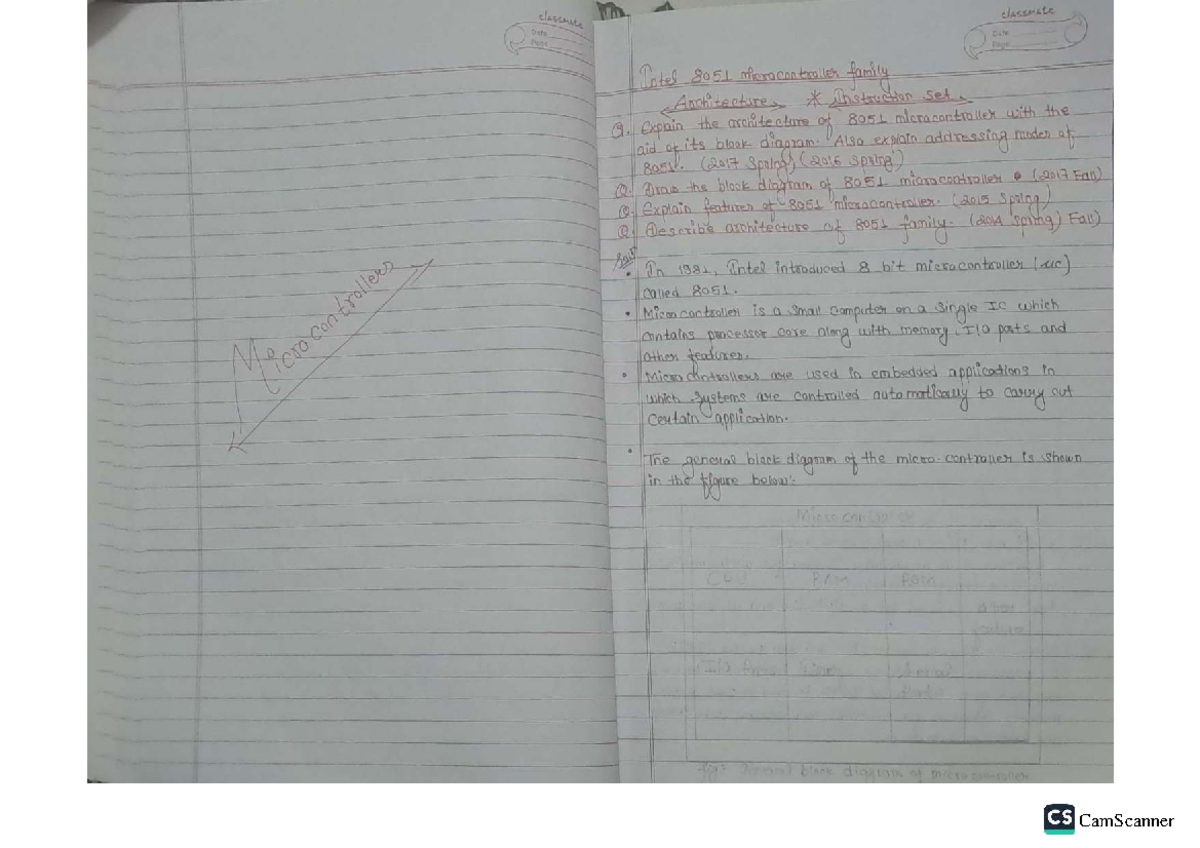 classmate
Date
Page
Microcontrollers
classmate
Date
Page
Intel 8051 microcontroller family
Architecture * Instruction set
Q. Expain the architecture of 8051 microcontroller with the
aid of its block diagram. Also explain addressing modes of
8051. (2017 Spring) (2016 Spring)
Q. Draw the block diagram of 8051 microcontroller. (2017 Fall)
Q. Explain features of 8051 microcontroller. (2015 Spring)
Q. Describe architecture of 8051 family. (2014 Spring) Fall)
• In 1981, Intel introduced 8 bit microcontroller (uc)
called 8051.
• Microcontroller is a small computer on a single IC which
contains processor core along with memory, I/O ports and
other features.
• Microcontrollers are used in embedded applications in
which systems are controlled automatically to carry out
certain application.
• The general block diagram of the micro-controller is shown
in the figure below:
Microcontroller
CPU RAM ROM
other
feature
I/O Timer Serial
Ports
fig: General block diagram of microcontroller
CS CamScanner